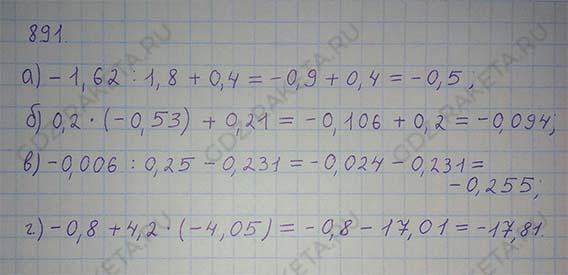 891.
а) -1,62 : 1,8 + 0,4 = -0,9 + 0,4 = -0,5;
б) 0,2 · (-0,53) + 0,21 = -0,106 + 0,2 = -0,094;
в) -0,006 : 0,25 - 0,231 = -0,024 - 0,231 =
-0,255;
г) -0,8 + 4,2 · (-4,05) = -0,8 - 17,01 = -17,81.